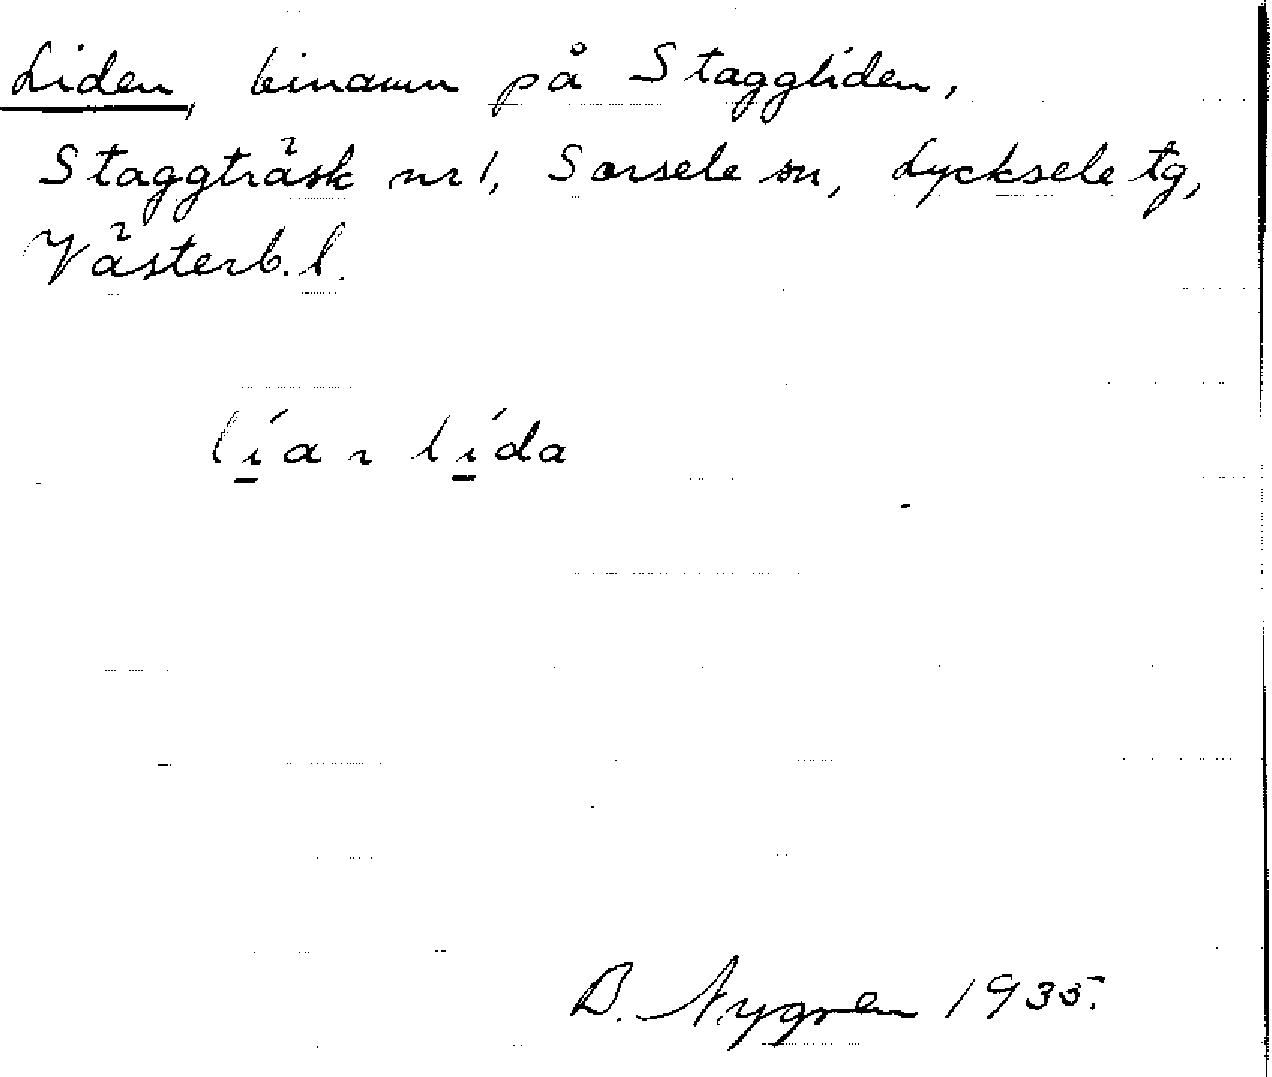 Liden, binamn på Staggliden,
Staggträsk nr 1, Sorsele sn, Lycksele tg,
Västerb. l.
lí̱a ~ lí̱da
B. Nygren 1935.